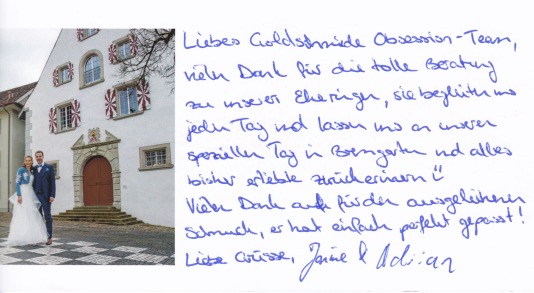 Liebes Goldschmiede Obsession-Team,
vielen Dank für die tolle Beratung
zu unseren Eheringen, sie begleiten uns
jeden Tag und lassen uns an unseren
speziellen Tag in Bremgarten und alles
bisher erlebte zurückerinnern
Vielen Dank auch für den ausgeliehenen
Schmuck, er hat einfach perfekt gepasst!
Liebe Grüsse, Janine & Adrian